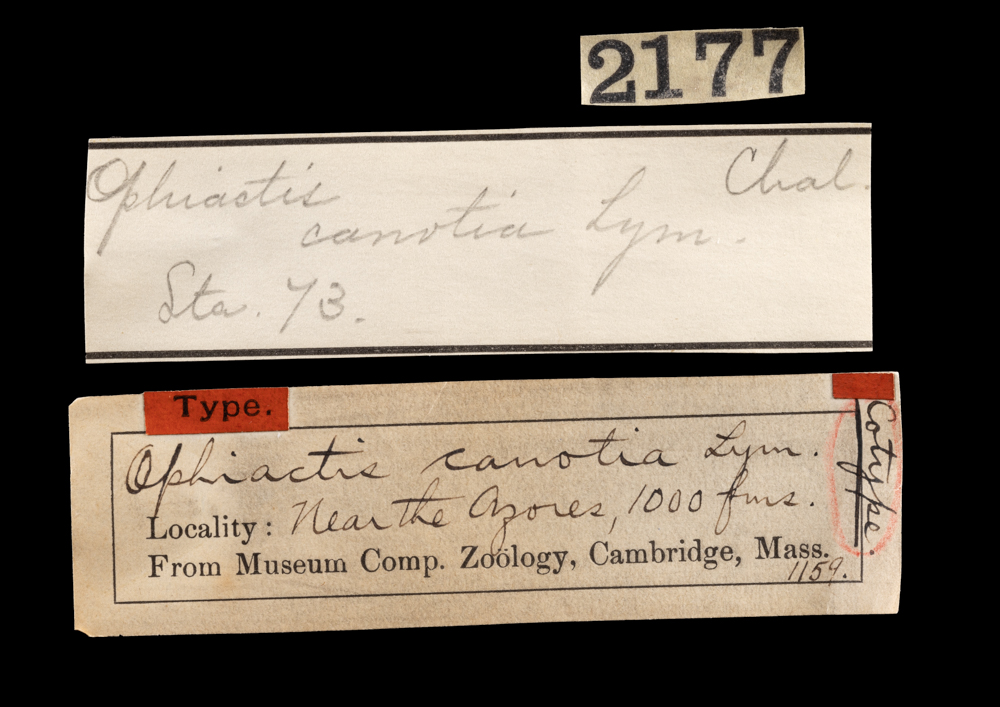 2177
Ophiactis Chal.
canotia Lym.
Sta. 73.
Type.
Ophiactis canotia Lym.
Locality: Near the Azores, 1000 fms.
From Museum Comp. Zoölogy, Cambridge, Mass.
1159.
Cotype.